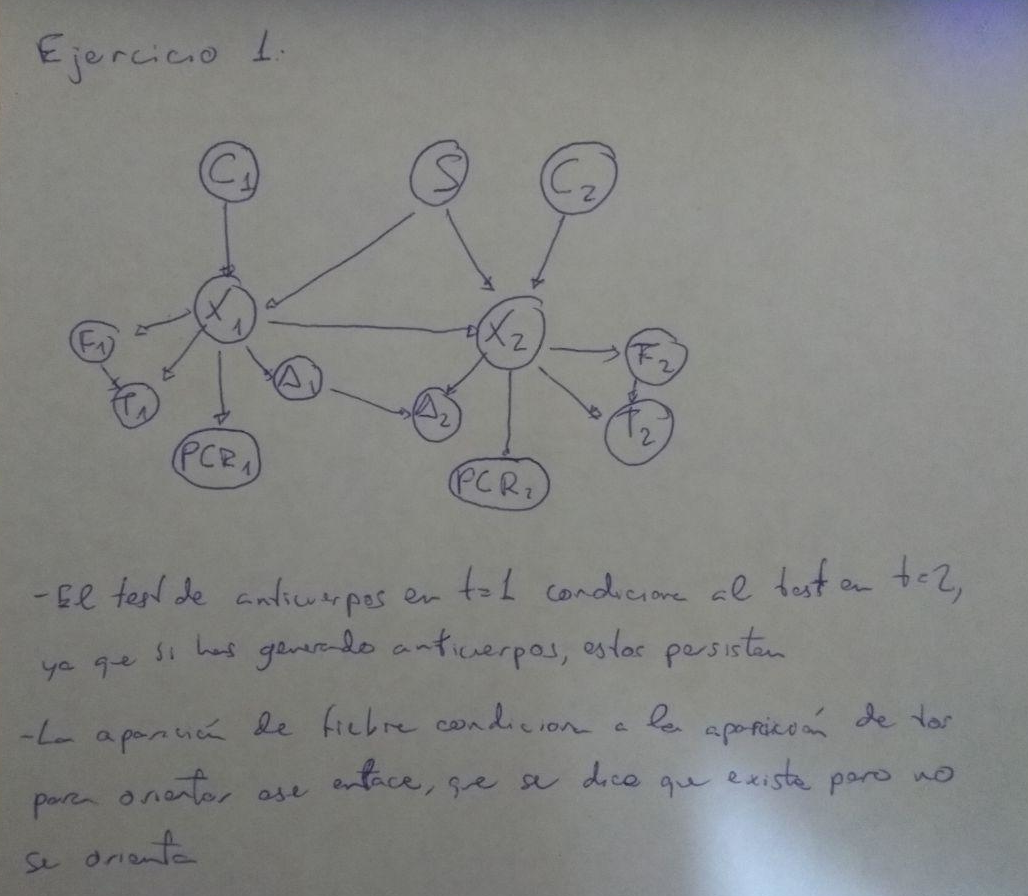 Ejercicio 1:
C1 S C2
X1 X2
F1 F2
T1 A1 A2 T2
PCR1 PCR2
-El test de anticuerpos en t=1 condiciona al test en t=2,
ya que si has generado anticuerpos, estos persisten
-La aparición de fiebre condiciona a la aparición de tos
para orientar ese enlace, que se dice que existe pero no
se orienta